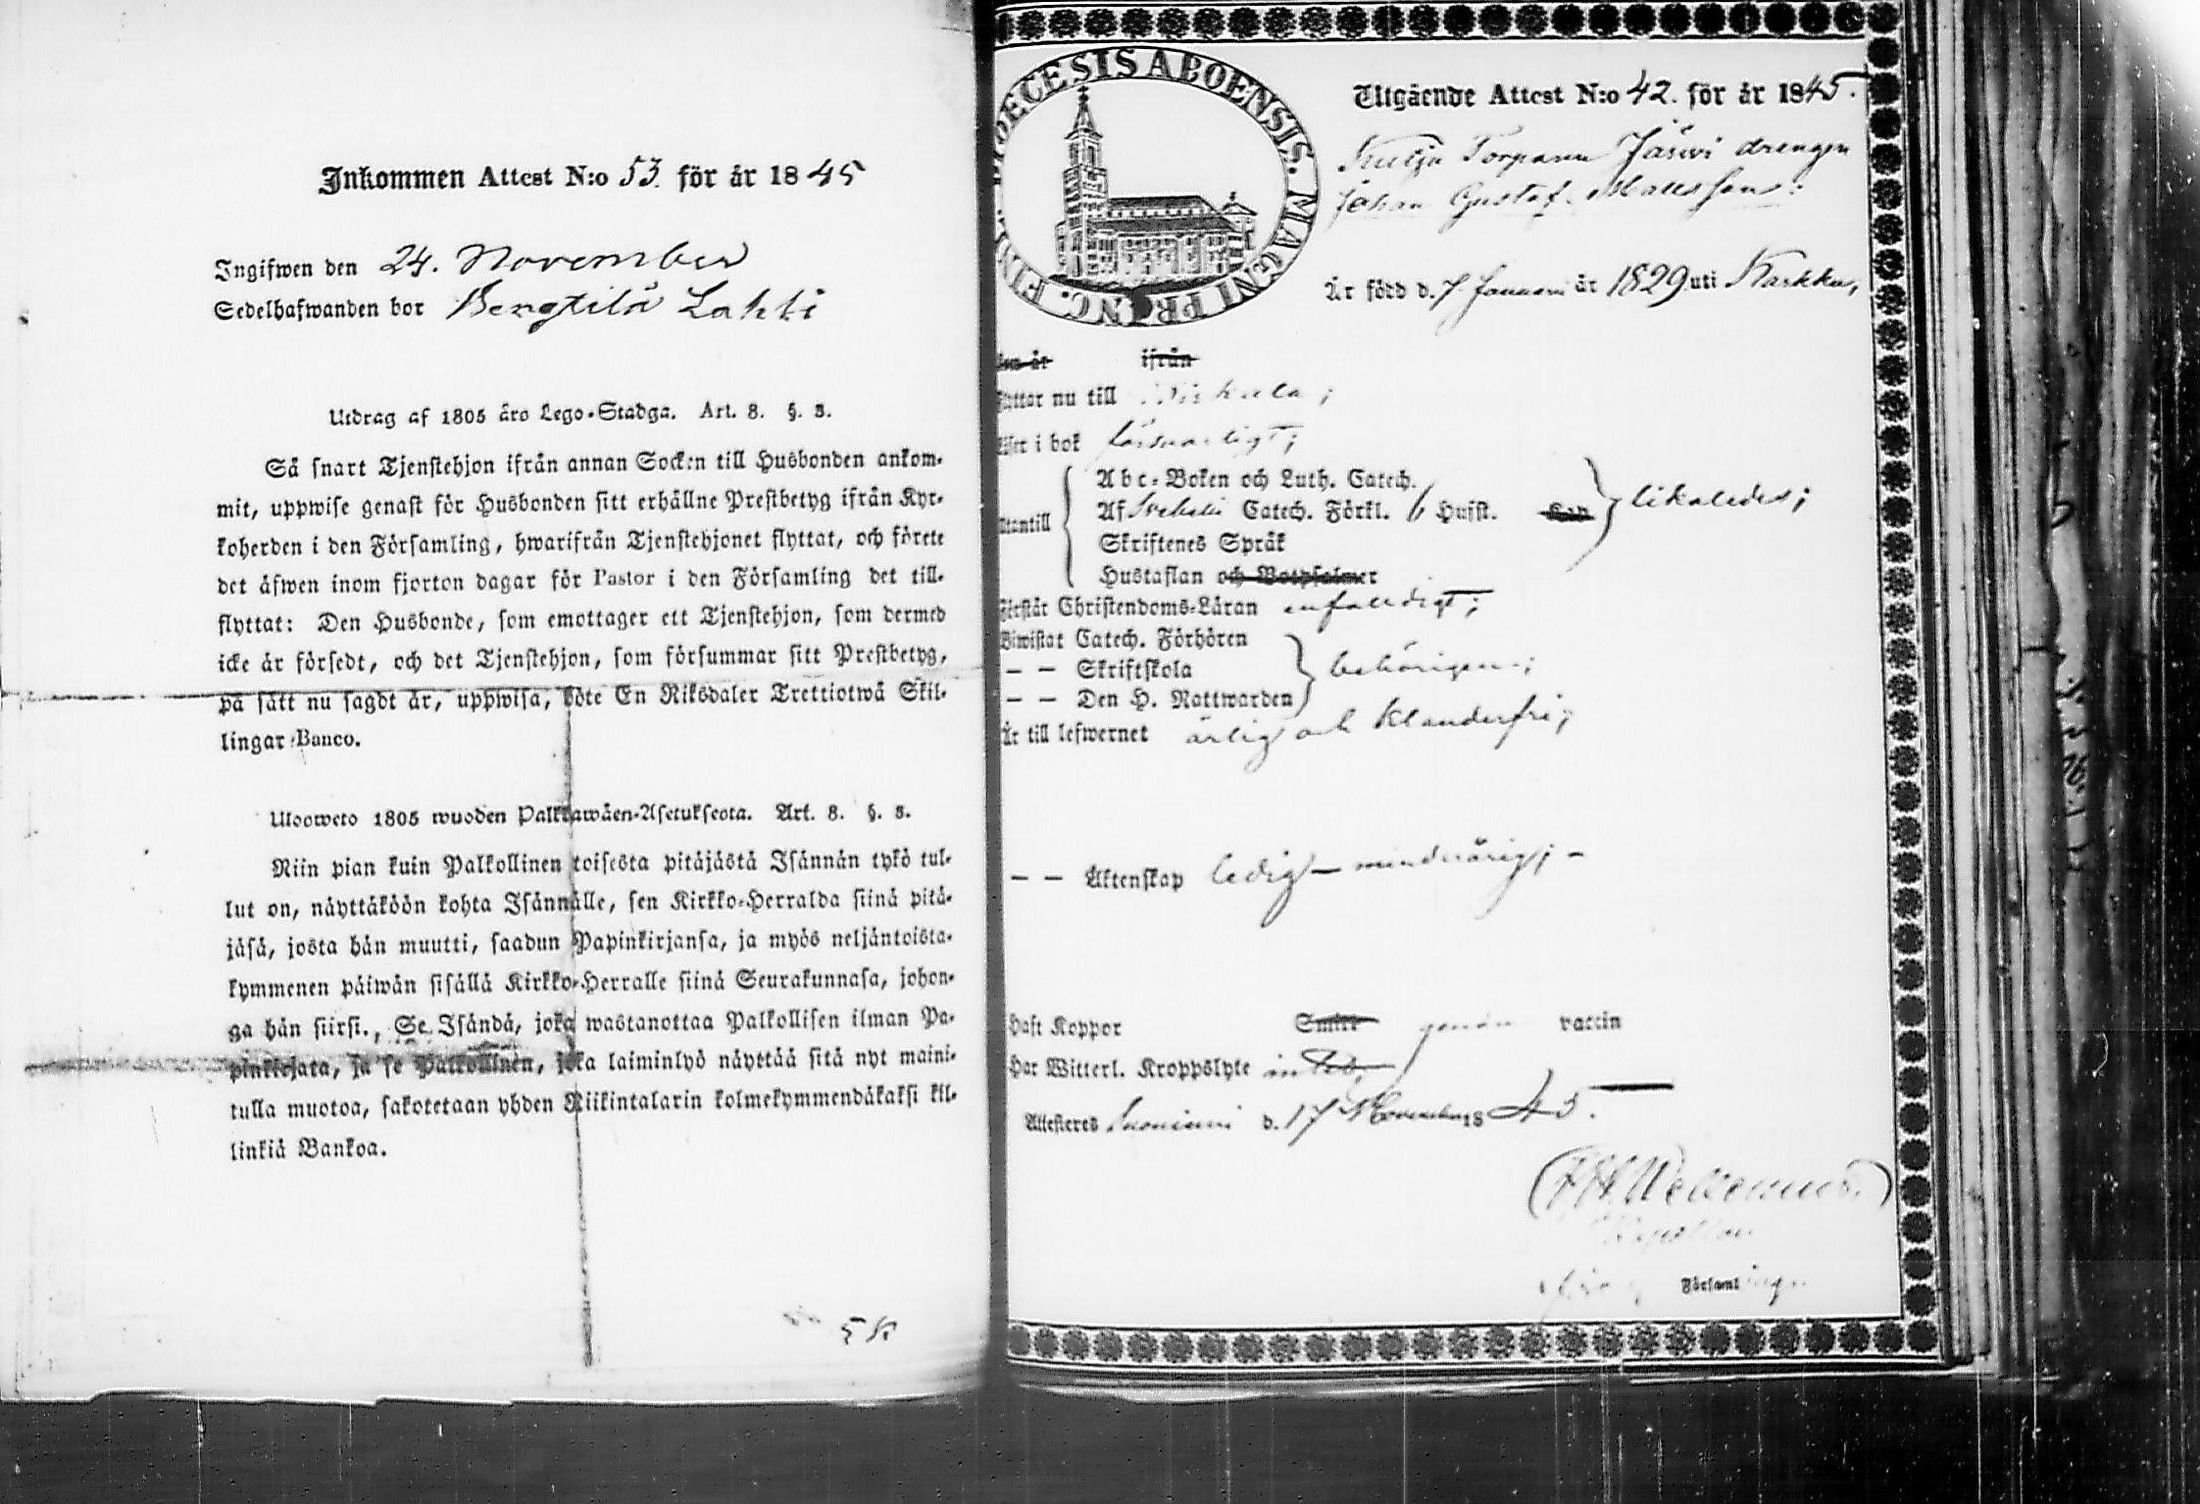 Inkommen Attest N:o 53. för år 1845
Ingifwen den 24. November
Sedelhafwanden bor Bengtilä Lahti
Utdrag af 1805 års Lego-Stadga. Art. 8. §. 3.
Så snart Tjenstehjon ifrån annan Socken till Husbonden ankom-
mit, uppwise genast för Husbonden sitt erhållne Prestbetyg ifrån Kyr-
koherden i den Församling, hwarifrån Tjenstehjonet flyttat, och förete
det äfwen inom fjorton dagar för Pastor i den Församling det till-
flyttat: Den Husbonde, som emottager ett Tjenstehjon, som dermed
icke är försedt, och det Tjenstehjon, som försummar sitt Prestbetyg,
på sätt nu sagdt är, uppwisa, böte En Riksdaler Trettiotwå Skil-
lingar Banco.
Ulosweto 1805 wuoden Palkkawäen-Asetuksesta. Art. 8. §. 3.
Niin pian kuin Palkollinen toisesta pitäjästä Isännän tykö tul-
lut on, näyttäköön kohta Isännälle, sen Kirkko-Herralda siinä pitä-
jäsä, josta hän muutti, saadun Papinkirjansa, ja myös neljäntoista-
kymmenen päiwän sisällä Kirkko-Herralle siinä Seurakunnasa, johon-
ga hän siirsi., Se Isändä, joka wastanottaa Palkollisen ilman Pa-
pinkirjata, ja se Palkollinen, joka laiminlyö näyttää sitä nyt maini-
tulla muotoa, sakotetaan yhden Riikintalarin kolmekymmendäkaksi kil-
linkiä Bankoa.
DIOECESIS ABOENSIS. MAGNI PRINC. FINL.
Utgående Attest N:o 42. för år 1845.
Torparn Järwi drengen
Johan Gustaf Mattsson:
Är född d. 7 Januari år 1829 uti Karkku,
ifrån
Flyttar nu till
Läser i bok försvarligt;
Abc-Boken och Luth. Catech.
Utantill Af Svebelii Catech. Förkl. 6 Hufst. likaledes;
Skriftenes Språk
Hustaflan och Botpsalmer
Förstår Christendoms-Läran enfaldigt;
Biwistat Catech. Förhören
— — Skriftskola behörigen;
— — Den H. Nattwarden
Är till lefwernet ärlig och klanderfri;
— — Äktenskap ledig – minderårig; –
Haft Koppor genom vaccin
Har Witterl. Kroppslyte
Attesteras Suoniemi d. 17 November 1845.
Församlingen